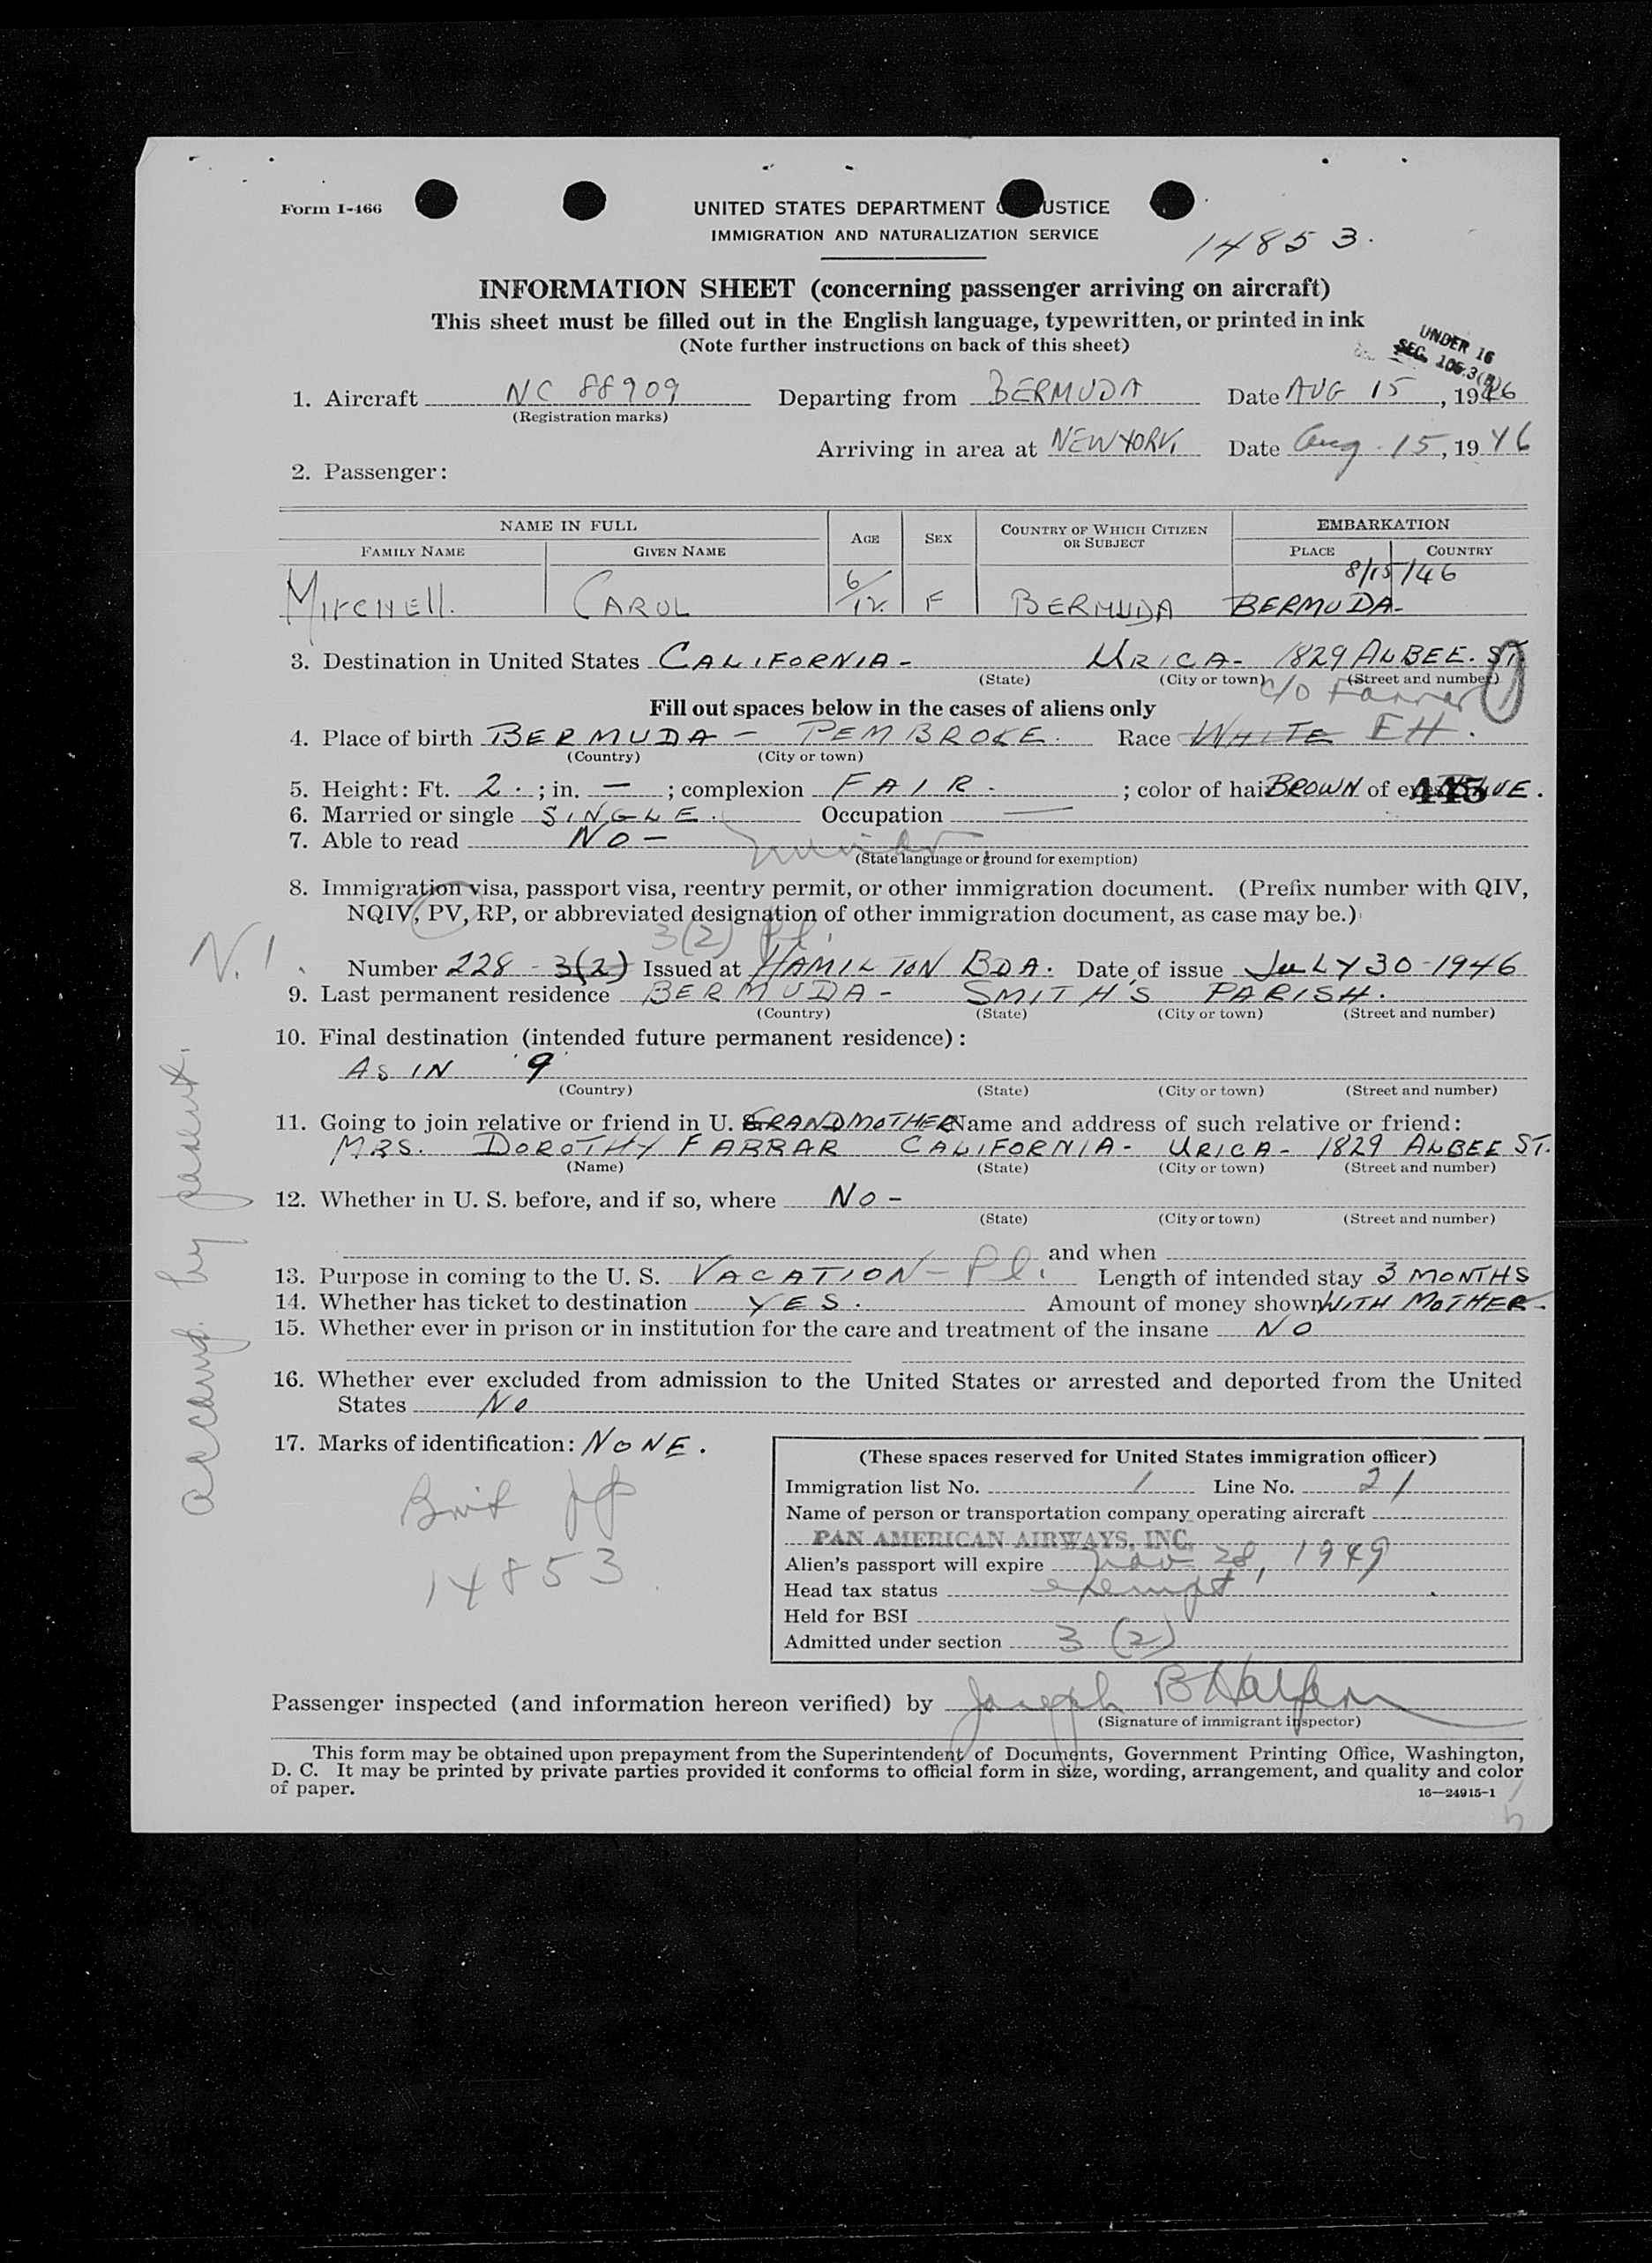 Form I-466
UNITED STATES DEPARTMENT USTICE
IMMIGRATION AND NATURALIZATION SERVICE
14853.
INFORMATION SHEET (concerning passenger arriving on aircraft)
This sheet must be filled out in the English language, typewritten, or printed in ink
(Note further instructions on back of this sheet)
UNDER 16
SEC. 105.3(B)
1. Aircraft NC 88909 Departing from BERMUDA Date AUG 15, 1946
(Registration marks)
Arriving in area at NEW YORK, Date Aug. 15, 1946
2. Passenger:
NAME IN FULL AGE SEX COUNTRY OF WHICH CITIZEN OR SUBJECT EMBARKATION
FAMILY NAME GIVEN NAME PLACE COUNTRY
8/15/46
MITCHELL. CAROL 6/12 F BERMUDA BERMUDA-
3. Destination in United States CALIFORNIA- URICA- 1829 ALBEE. ST.
(State) (City or town) (Street and number)
c/o Farrar
Fill out spaces below in the cases of aliens only
4. Place of birth BERMUDA - PEMBROKE. Race WHITE EH.
(Country) (City or town)
5. Height: Ft. 2. ; in. — ; complexion FAIR. ; color of hair BROWN of eyes BLUE.
445
6. Married or single SINGLE. Occupation —
7. Able to read NO - minor
(State language or ground for exemption)
8. Immigration visa, passport visa, reentry permit, or other immigration document. (Prefix number with QIV,
NQIV, PV, RP, or abbreviated designation of other immigration document, as case may be.)
3(2) Pl.
N.I.
Number 228 - 3(2) Issued at HAMILTON BDA. Date of issue JULY 30 - 1946
9. Last permanent residence BERMUDA - SMITH'S PARISH.
(Country) (State) (City or town) (Street and number)
10. Final destination (intended future permanent residence):
AS IN 9
(Country) (State) (City or town) (Street and number)
11. Going to join relative or friend in U. S. GRANDMOTHER Name and address of such relative or friend:
MRS. DOROTHY FARRAR CALIFORNIA- URICA- 1829 ALBEE ST.
(Name) (State) (City or town) (Street and number)
12. Whether in U. S. before, and if so, where NO -
(State) (City or town) (Street and number)
and when
13. Purpose in coming to the U. S. VACATION - Pl. Length of intended stay 3 MONTHS
14. Whether has ticket to destination YES. Amount of money shown WITH MOTHER-
15. Whether ever in prison or in institution for the care and treatment of the insane NO
16. Whether ever excluded from admission to the United States or arrested and deported from the United
States NO
17. Marks of identification: NONE.
accomp. by parent.
Brit pp
14853
(These spaces reserved for United States immigration officer)
Immigration list No. 1 Line No. 21
Name of person or transportation company operating aircraft
PAN AMERICAN AIRWAYS, INC.
Alien's passport will expire Nov 28, 1949
Head tax status exempt
Held for BSI
Admitted under section 3 (2)
Passenger inspected (and information hereon verified) by Joseph B Halpern
(Signature of immigrant inspector)
This form may be obtained upon prepayment from the Superintendent of Documents, Government Printing Office, Washington,
D. C. It may be printed by private parties provided it conforms to official form in size, wording, arrangement, and quality and color
of paper.
16—24915-1